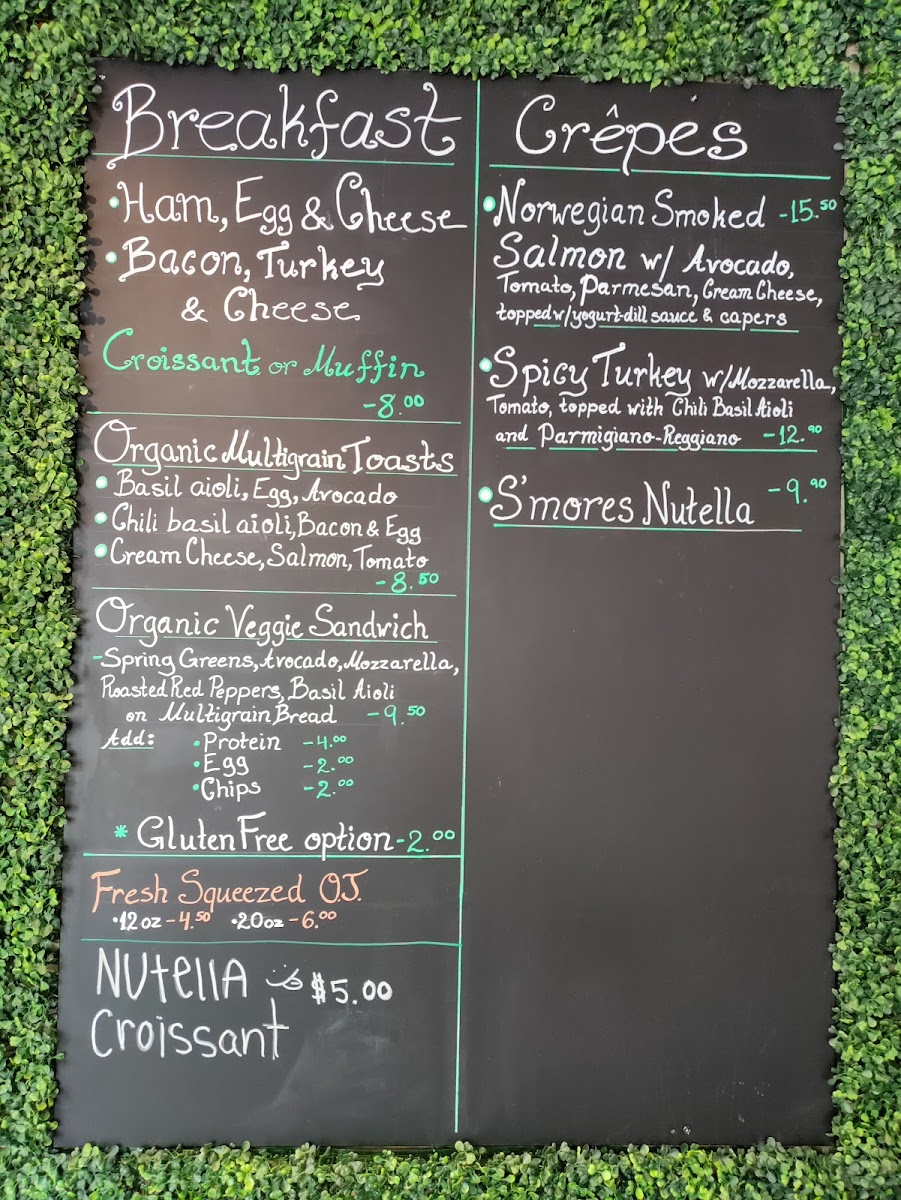 Breakfast
•Ham, Egg & Cheese
•Bacon, Turkey
& Cheese
Croissant or Muffin
-8.00
Organic Multigrain Toasts
• Basil aioli, Egg, Avocado
• Chili basil aioli, Bacon & Egg
• Cream Cheese, Salmon, Tomato
-8.50
Organic Veggie Sandwich
-Spring Greens, Avocado, Mozzarella,
Roasted Red Peppers, Basil Aioli
on Multigrain Bread -9.50
Add: •Protein -4.00
•Egg -2.00
•Chips -2.00
* Gluten Free option -2.00
Fresh Squeezed O.J.
•12 oz -4.50 •20oz -6.00
Nutella $5.00
Croissant
Crêpes
•Norwegian Smoked -15.50
Salmon w/ Avocado,
Tomato, Parmesan, Cream Cheese,
topped w/yogurt-dill sauce & capers
•Spicy Turkey w/Mozzarella,
Tomato, topped with Chili Basil Aioli
and Parmigiano-Reggiano -12.90
•S'mores Nutella -9.90